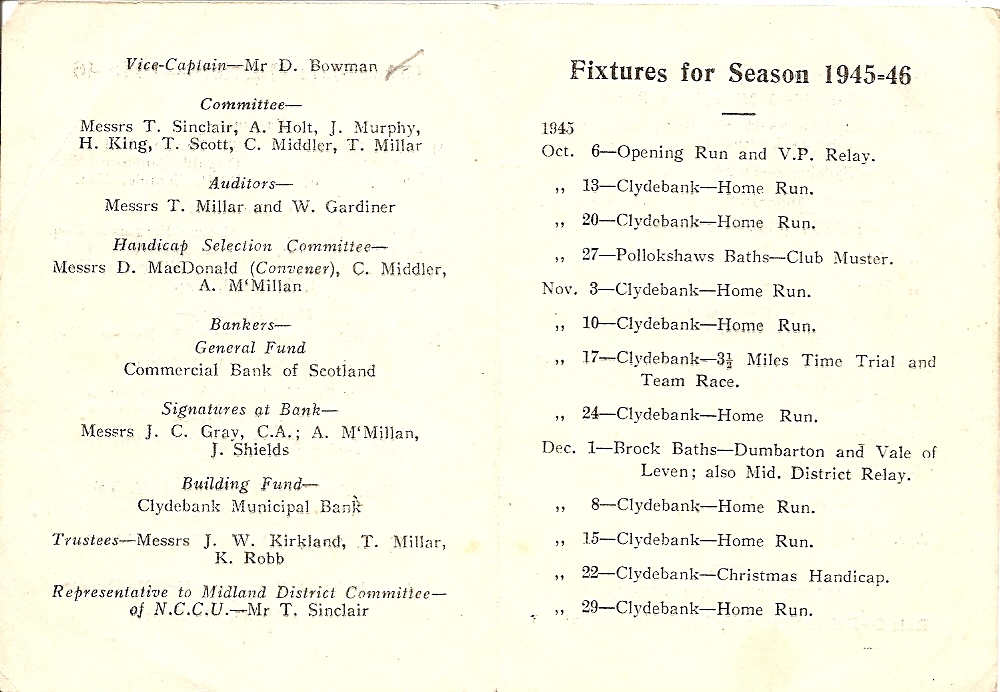 Vice-Captain—Mr D. Bowman
Committee—
Messrs T. Sinclair, A. Holt, J. Murphy,
H. King, T. Scott, C. Middler, T. Millar
Auditors—
Messrs T. Millar and W. Gardiner
Handicap Selection Committee—
Messrs D. MacDonald (Convener), C. Middler,
A. M‘Millan
Bankers—
General Fund
Commercial Bank of Scotland
Signatures at Bank—
Messrs J. C. Gray, C.A.; A. M‘Millan,
J. Shields
Building Fund—
Clydebank Municipal Bank
Trustees—Messrs J. W. Kirkland, T. Millar,
K. Robb
Representative to Midland District Committee—
of N.C.C.U.—Mr T. Sinclair
Fixtures for Season 1945-46
1945
Oct. 6—Opening Run and V.P. Relay.
,, 13—Clydebank—Home Run.
,, 20—Clydebank—Home Run.
,, 27—Pollokshaws Baths—Club Muster.
Nov. 3—Clydebank—Home Run.
,, 10—Clydebank—Home Run.
,, 17—Clydebank—3½ Miles Time Trial and
Team Race.
,, 24—Clydebank—Home Run.
Dec. 1—Brock Baths—Dumbarton and Vale of
Leven; also Mid. District Relay.
,, 8—Clydebank—Home Run.
,, 15—Clydebank—Home Run.
,, 22—Clydebank—Christmas Handicap.
,, 29—Clydebank—Home Run.